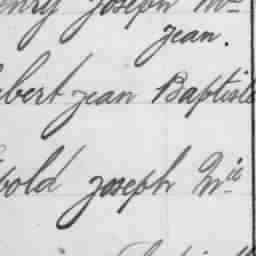 enry Joseph Mie
Jean.
bert Jean Baptiste
pold Joseph Mie